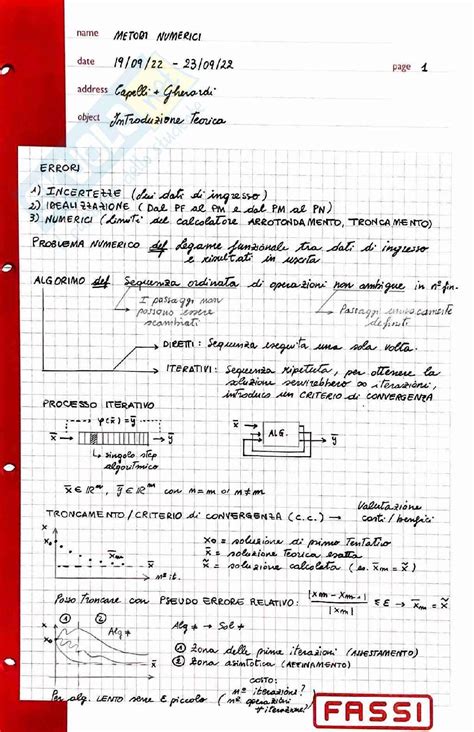 name METODI NUMERICI
date 19/09/22 - 23/09/22
page 1
address Capelli + Gherardi
object Introduzione Teorica
ERRORI
1) INCERTEZZE (sui dati di ingresso)
2) IDEALIZZAZIONE (DAL PF al PM e dal PM al PN)
3) NUMERICI (limiti del calcolatore ARROTONDAMENTO, TRONCAMENTO)
PROBLEMA NUMERICO def Legame funzionale tra dati di ingresso
e risultati in uscita
ALGORIMO def Sequenza ordinata di operazioni non ambigue in n° fin.
I passaggi non
possono essere
scambiati
Passaggi univocamente
definiti
DIRETTI: Sequenza eseguita una sola volta.
ITERATIVI: Sequenza ripetuta, per ottenere la
soluzione servirebbero ∞ iterazioni,
introduco un CRITERIO di CONVERGENZA
PROCESSO ITERATIVO
φ(x̄) = ȳ
x̄ → → ȳ
singolo step
algoritmico
x̄ ALG. ȳ
x̄ ∈ ℝⁿ, ȳ ∈ ℝᵐ con n = m o n ≠ m
TRONCAMENTO / CRITERIO di CONVERGENZA (C.C.) → Valutazione
costi / benefici
x
x₀
x̄ₘ
n° it.
x₀ = soluzione di primo Tentativo
x̄ = soluzione Teorica esatta
x̃ = soluzione calcolata (es. x̄ₘ = x̃)
Posso Troncare con PSEUDO ERRORE RELATIVO: |xₘ - xₘ₋₁| / |xₘ| ≤ E → x̄ₘ = x̃
① ②
Alg * → Sol *
① Zona delle prime iterazioni (ALLESTAMENTO)
② Zona asintotica (AFFINAMENTO)
Per alg. LENTO serve E piccolo
COSTO:
n° iterazione?
n° operazioni
* iterazione?
FASSI